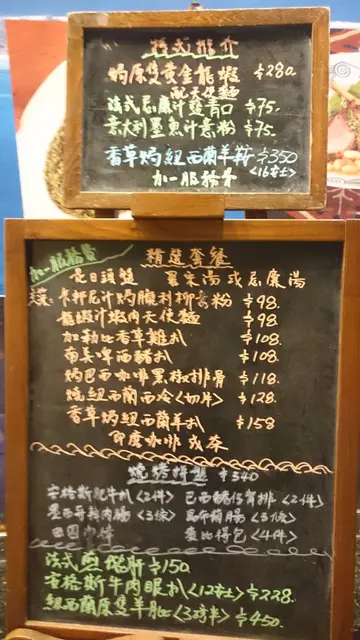 特式推介
焗原隻黃金龍蝦 $280.
配天使麵
法式忌廉汁煮青口 $75.
意大利墨魚汁意粉 $75.
香草焗紐西蘭羊鞍 $350
加一服務費 <16安士>
加一服務費
精選套餐
是日頭盤 羅宋湯或忌廉湯
主菜: 卡邦尼汁焗腸利柳意粉 $98.
龍蝦汁蝦肉天使麵 $98.
加勒比香草雞扒 $108.
南美啤酒豬扒 $108.
焗巴西咖啡黑椒排骨 $118.
燒紐西蘭西冷<切片> $128.
香草焗紐西蘭羊扒 $158
即磨咖啡或茶
燒烤拼盤 $340
安格斯肥牛扒<2件> 巴西豬仔骨排<2件>
墨西哥辣肉腸<3條> <3條>
田園巾條 <4件>
法式煎鴨肝 $150.
安格斯牛肉眼扒<12安士> $228.
紐西蘭原隻羊 $450.